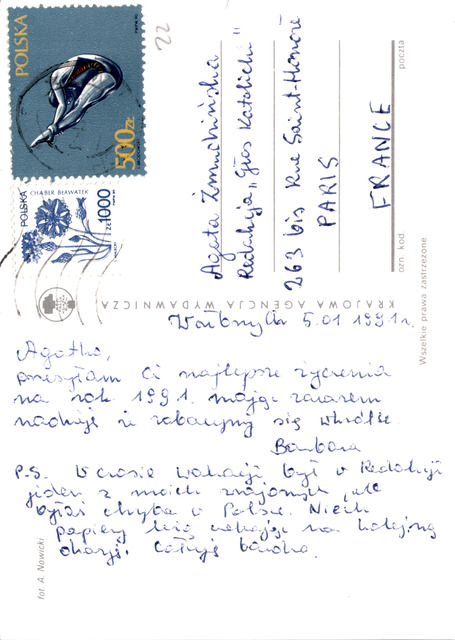 POLSKA
500 ZŁ
POLSKA
CHABER BŁAWATEK
1000 ZŁ
22
Agata
Redakcja „Głos Katolicki"
263 bis Rue Saint-Honoré
PARIS
FRANCE
ozn. kod
poczta
KRAJOWA AGENCJA WYDAWNICZA
Wszelkie prawa zastrzeżone
5.01 1991 r.
Agatko,
przesyłam Ci najlepsze życzenia
na rok 1991. mając zarazem
nadzieję że zobaczymy się wkrótce.
Barbara
P.S. W czasie wakacji był w Redakcji
jeden z moich znajomych, ale
byłaś chyba w Polsce. Niech
papiery leżą czekając na kolejną
okazję. Całuję bardzo.
fot. A. Nowicki